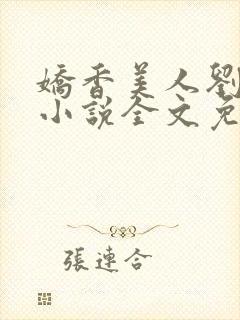 嬌香美人劉
小說全文免
張連合